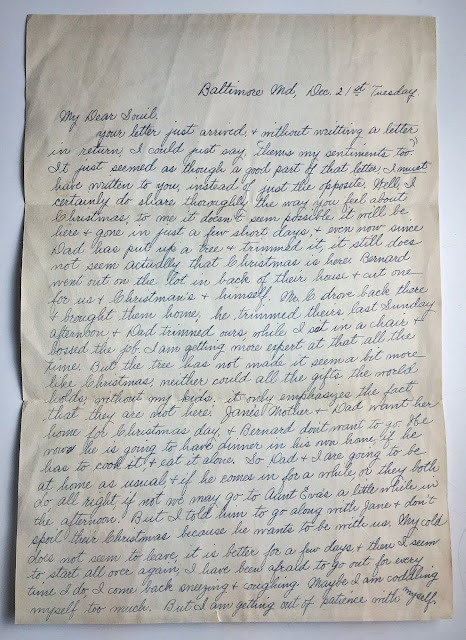 Baltimore Md, Dec. 21st Tuesday
My Dear
your letter just arrived, & without writing a letter
in return, I could just say, "thems my sentiments too".
It just seemed as though a good part of that letter, I must
have written to you, instead of just the opposite. Well, I
certainly do share thoroughly the way you feel about
Christmas, to me it doesn't seem possible it will be
here & gone in just a few short days, & even now since
Dad has put up a tree & trimmed it, it still does
not seem actually that Christmas is here. Bernard
went out on the lot in back of their house & cut one
for us & Christman's & himself. Mr. C drove back there
& brought them home, he trimmed theirs last Sunday
afternoon & Dad trimmed ours while I sat in a chair &
bossed the job. I am getting more expert at that all the
time. But the tree has not made it seem a bit more
like Christmas, neither could all the gifts the world
holds, without my kids. it only emphasizes the fact
that they are not here! Janes Mother & Dad want her
home for Christmas day, & Bernard don't want to go. He
he is going to have dinner in his own home, if he
has to cook it & eat it alone. So Dad & I are going to be
at home as usual, & if he comes in for a while or they both
do, all right if not we may go to Aunt Eva's a little while in
the afternoon. But I told him to go along with Jane & don't
spoil their Christmas because he wants to be with us. My cold
does not seem to leave, it is better for a few days, & then I seem
to start all once again, I have been afraid to go out for every
time I do I come back sneezing & coughing. Maybe I am coddling
myself too much. But I am getting out of patience with myself.